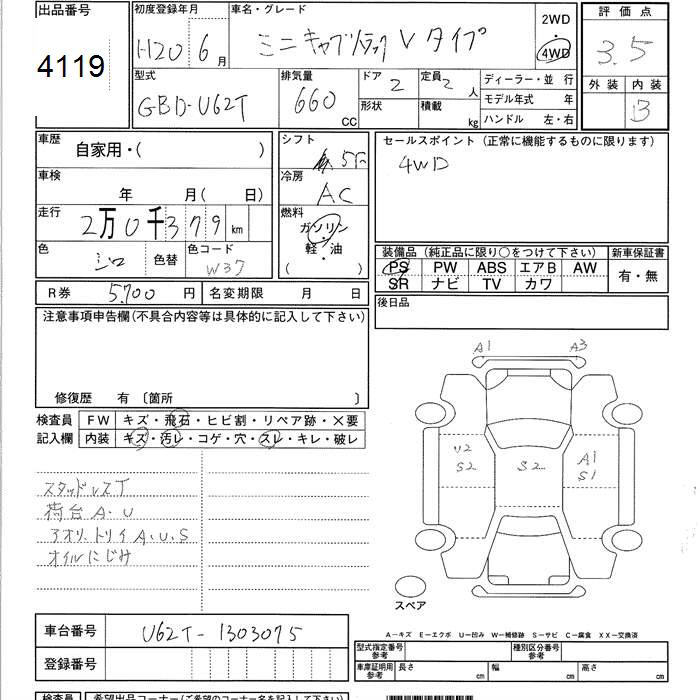 出品番号 4119
初度登録年月 H20 6月
車名・グレード ミニキャブトラック Vタイプ
2WD 4WD
評価点 3.5
外装 内装 B
型式 GBD-U62T
排気量 660 CC
ドア 2 定員 2 人
形状 積載 kg
ディーラー・並行
モデル年式 年
ハンドル 左・右
車歴 自家用・( )
車検 年 月( 日)
走行 2万0千379km
色 シロ 色替 色コード W37
シフト 5F
冷房 AC
燃料 ガソリン・軽・油 ( )
セールスポイント (正常に機能するものに限ります)
4WD
装備品 (純正品に限り○をつけて下さい) 新車保証書
PS PW ABS エアB AW 有・無
SR ナビ TV カワ
後日品
R券 5,700円 名変期限 月 日
注意事項申告欄(不具合内容等は具体的に記入して下さい)
修復歴 有 〔箇所 〕
検査員記入欄
FW キズ・飛石・ヒビ割・リペア跡・×要
内装 キズ・汚レ・コゲ・穴・スレ・キレ・破レ
スタッドレスT
荷台A.U
アオリ.トリイA.U.S
オイルにじみ
A1 A3
U2 S2 S2 A1 S1
スペア
車台番号 U62T-1303075
登録番号
A-キズ E-エクボ U-凹み W-補修跡 S-サビ C-腐食 XX-交換済
型式指定番号 参考 種別区分番号 参考
車庫証明用 参考 長さ cm 幅 cm 高さ cm
検査員 希望出品コーナー(ご希望のコーナー名を記入下さい)